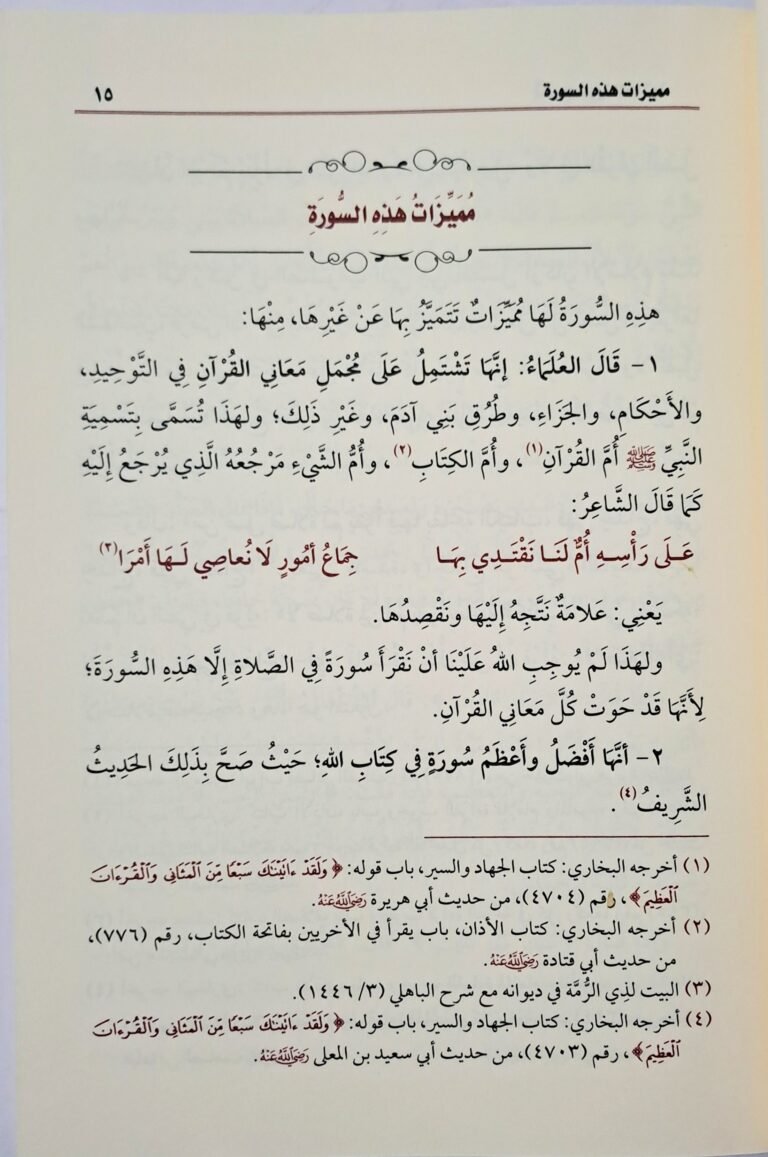 مميزات هذه السورة
١٥
مُمَيِّزَاتُ هَذِهِ السُّورَةِ
هذِهِ السُّورَةُ لَهَا مُمَيِّزَاتٌ تَتَمَيَّزُ بِهَا عَنْ غَيْرِهَا، مِنْهَا:
١- قَالَ العُلَمَاءُ: إنَّهَا تَشْتَمِلُ عَلَى مُجْمَلِ مَعَانِي القُرْآنِ فِي التَّوْحِيدِ،
والأَحْكَامِ، والجَزَاءِ، وطُرُقِ بَنِي آدَمَ، وغَيْرِ ذَلِكَ؛ ولهَذَا تُسَمَّى بِتَسْمِيَةِ
النَّبِيِّ ﷺ أُمَّ القُرْآنِ(١)، وأُمَّ الكِتَابِ(٢)، وأُمُّ الشَّيْءِ مَرْجُعُهُ الَّذِي يُرْجَعُ إِلَيْهِ
كَمَا قَالَ الشَّاعِرُ:
عَـلَى رَأْسِـهِ أُمٌّ لَنَـا نَقْتَـدِي بِهَـا جِمَاعُ أمُورٍ لَا نُعاصِي لَـهَا أَمْرَا(٣)
يَعْنِي: عَلامَةٌ نَتَّجِهُ إِلَيْهَا ونَقْصِدُهَا.
ولهَذَا لَمْ يُوجِبِ اللهُ عَلَيْنَا أنْ نَقْرَأَ سُورَةً فِي الصَّلاةِ إِلَّا هَذِهِ السُّورَةَ؛
لِأَنَّهَا قَدْ حَوَتْ كُلَّ مَعَانِي القُرْآنِ.
٢- أنَّهَا أَفْضَلُ وأَعْظَمُ سُورَةٍ فِي كِتَابِ اللهِ؛ حَيْثُ صَحَّ بِذَلِكَ الحَدِيثُ
الشَّرِيفُ(٤).
(١) أخرجه البخاري: كتاب الجهاد والسير، باب قوله: ﴿وَلَقَدْ ءَاتَيْنَٰكَ سَبْعًا مِّنَ ٱلْمَثَانِى وَٱلْقُرْءَانَ
ٱلْعَظِيمَ﴾، رقم (٤٧٠٤)، من حديث أبي هريرة رَضِيَ اللَّهُ عَنْهُ.
(٢) أخرجه البخاري: كتاب الأذان، باب يقرأ في الأخريين بفاتحة الكتاب، رقم (٧٧٦)،
من حديث أبي قتادة رَضِيَ اللَّهُ عَنْهُ.
(٣) البيت لذِي الرُّمَّة في ديوانه مع شرح الباهلي (٣/ ١٤٤٦).
(٤) أخرجه البخاري: كتاب الجهاد والسير، باب قوله: ﴿وَلَقَدْ ءَاتَيْنَٰكَ سَبْعًا مِّنَ ٱلْمَثَانِى وَٱلْقُرْءَانَ
ٱلْعَظِيمَ﴾، رقم (٤٧٠٣)، من حديث أبي سعيد بن المعلى رَضِيَ اللَّهُ عَنْهُ.